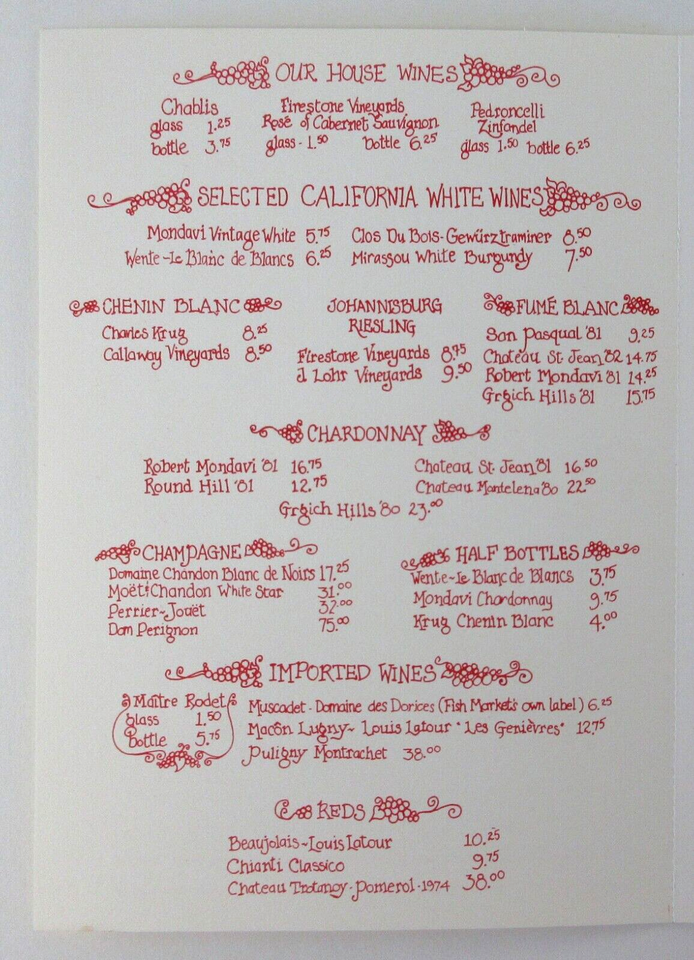 OUR HOUSE WINES
Chablis
glass 1.25
bottle 3.75
Firestone Vineyards
Rosé of Cabernet Sauvignon
glass - 1.50 bottle 6.25
Pedroncelli
Zinfandel
glass 1.50 bottle 6.25
SELECTED CALIFORNIA WHITE WINES
Mondavi Vintage White 5.75
Wente-Le Blanc de Blancs 6.25
Clos Du Bois-Gewürztraminer 8.50
Mirassou White Burgundy 7.50
CHENIN BLANC
Charles Krug 8.25
Callaway Vineyards 8.50
JOHANNISBURG
RIESLING
Firestone Vineyards 8.75
J Lohr Vineyards 9.50
FUMÉ BLANC
San Pasqual '81 9.25
Chateau St. Jean '82 14.75
Robert Mondavi '81 14.25
Grgich Hills '81 15.75
CHARDONNAY
Robert Mondavi '81 16.75
Round Hill '81 12.75
Chateau St. Jean '81 16.50
Chateau Montelena '80 22.50
Grgich Hills '80 23.00
CHAMPAGNE
Domaine Chandon Blanc de Noirs 17.25
Moët & Chandon White Star 31.00
Perrier-Jouët 32.00
Dom Perignon 75.00
HALF BOTTLES
Wente-Le Blanc de Blancs 3.75
Mondavi Chardonnay 9.75
Krug Chenin Blanc 4.00
IMPORTED WINES
Maître Rodet
glass 1.50
bottle 5.75
Muscadet - Domaine des Dorices (Fish Market's own label) 6.25
Macôn Lugny- Louis Latour "Les Genièvres" 12.75
Puligny Montrachet 38.00
REDS
Beaujolais-Louis Latour 10.25
Chianti Classico 9.75
Chateau Trotanoy - Pomerol - 1974 38.00